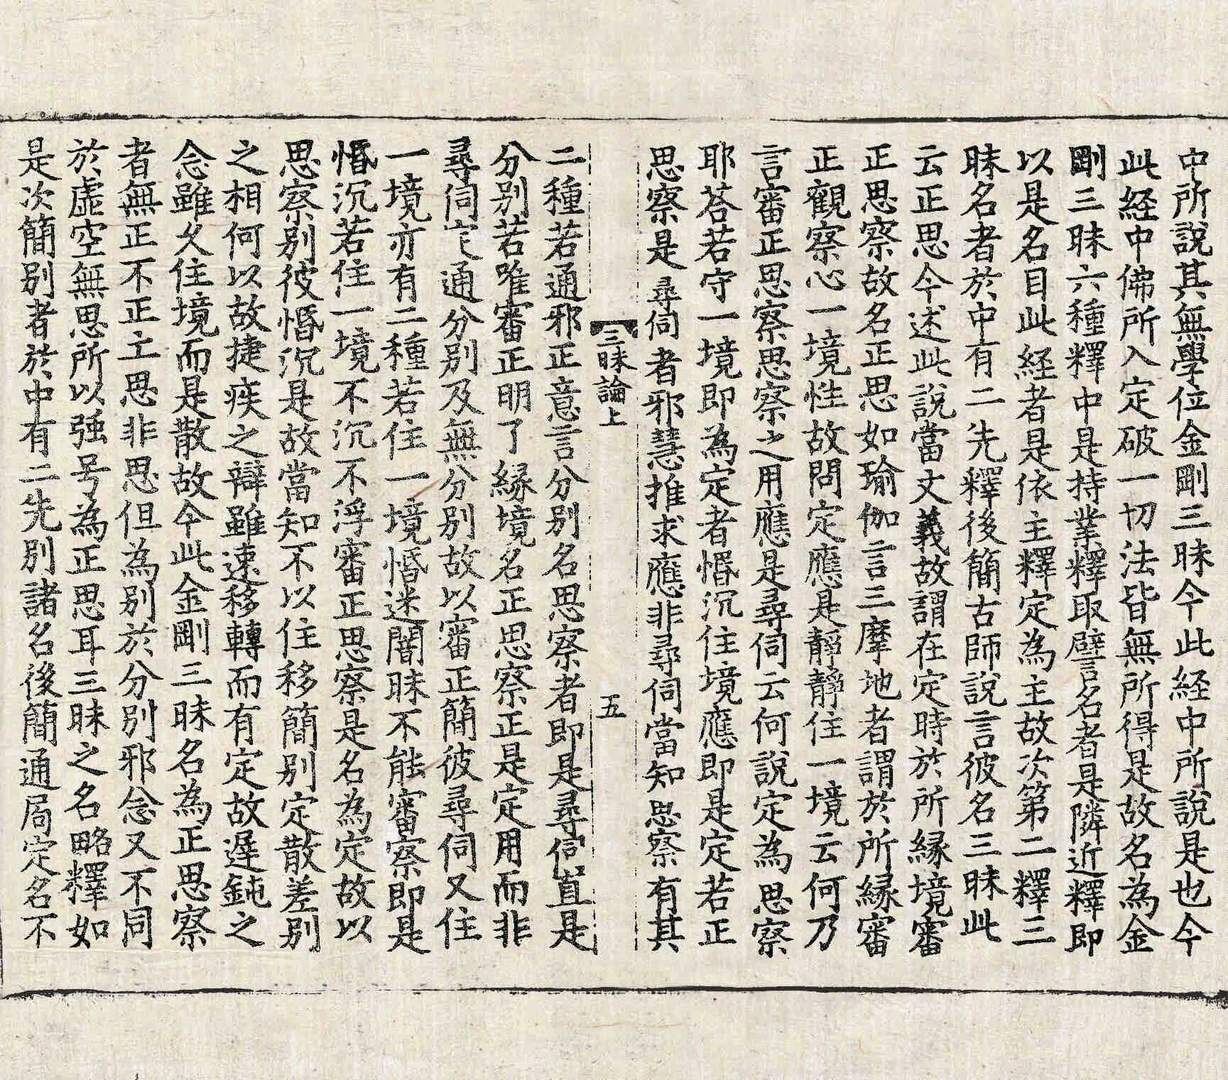 中所說其無學位金剛三昧今此經中所說是也今
此經中佛所入定破一切法皆無所得是故名為金
剛三昧六種釋中是持業釋取譬言名者是隣近釋即
以是名目此經者是依主釋定為主故次第二釋三
昧名者於中有二先釋後簡古師說言彼名三昧此
云正思今述此說當丈義故謂在定時於所緣境審
正思察故名正思如瑜伽言三摩地者謂於所緣審
正觀察心一境性故問定應是靜靜住一境云何乃
言審正思察思察之用應是尋伺云何說定為思察
耶荅若守一境即為定者惛沉住境應即是定若正
思察是尋伺者邪慧推求應非尋伺當知思察有其
三昧論上　五
二種若通邪正意言分別名思察者即是尋伺直是
分別若唯審正明了緣境名正思察正是定用而非
尋伺定通分別及無分別故以審正簡彼尋伺又住
一境亦有二種若住一境惛迷闇昧不能審察即是
惛沉若住一境不沉不浮審正思察是名為定故以
思察別彼惛沉是故當知不以住移簡別定散差別
之相何以故捷疾之辯雖速移轉而有定故遲鈍之
念雖久住境而是散故今此金剛三昧名為正思察
者無正不正工思非思但為別於分別邪念又不同
於虛空無思所以强号為正思耳三昧之名略釋如
是次簡別者於中有二先別諸名後簡通局定名不